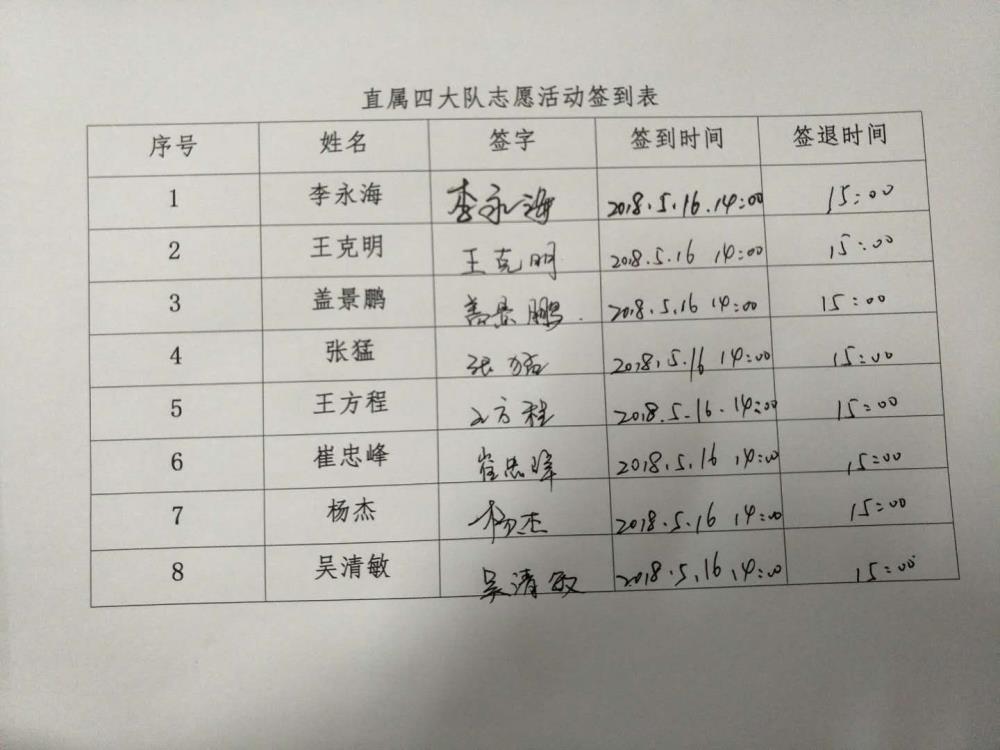 直属四大队志愿活动签到表
序号 姓名 签字 签到时间 签退时间
1 李永海 李永海 2018.5.16.14:00 15:00
2 王克明 王克明 2018.5.16 14:00 15:00
3 盖景鹏 盖景鹏. 2018.5.16 14:00 15:00
4 张猛 张猛 2018.5.16 14:00 15:00
5 王方程 王方程 2018.5.16.14:00 15:00
6 崔忠峰 崔忠峰 2018.5.16 14:00 15:00
7 杨杰 杨杰 2018.5.16 14:00 15:00
8 吴清敏 吴清敏 2018.5.16 14:00 15:00